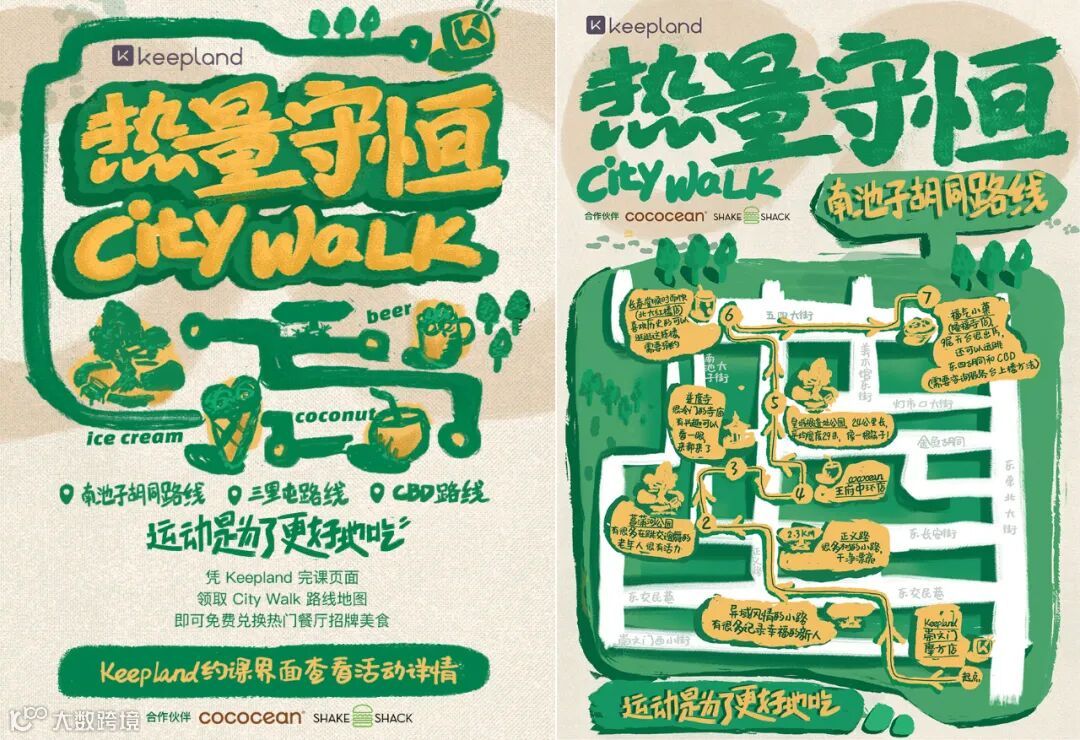 keepland
热量守恒
City Walk
beer
ice cream
coconut
南池子胡同路线
三里屯路线
CBD路线
运动是为了更好地吃
凭 Keepland 完课页面
领取 City Walk 路线地图
即可免费兑换热门餐厅招牌美食
Keepland约课界面查看活动详情
大数跨境
合作伙伴
COCOCEAN®
SHAKE SHACK
keepland
热量守恒
City Walk
合作伙伴
COCOCEAN®
SHAKE SHACK
南池子胡同路线
(北大红楼店)
喜欢历史的可以
逛逛这栋楼
需要预约
6
五四大街
7
福元小菓
(隆福寺店)
还可以逛逛
东四胡同和CBD
(需要咨询服务台上楼方法)
南池子大街
美术馆东街
灯市口大街
普度寺
很冷门的寺庙
有兴趣可以
看一眼
来都来了
5
皇城根遗址公园, 2.4公里长,
平均宽度29米, 像一根筷子!
金鱼胡同
东单北大街
3
4
cococean
王府中环店
菖蒲河公园
有很多在跳交谊舞的
老年人 很有活力
2
2.3KM
正义路
很多树的小路,
干净漂亮
东长安街
正义路
东交民巷
东交民巷
异域风情的小路
有很多记录幸福的新人
Keepland
崇文门
魔方店
崇文门西小街
起点
运动是为了更好地吃